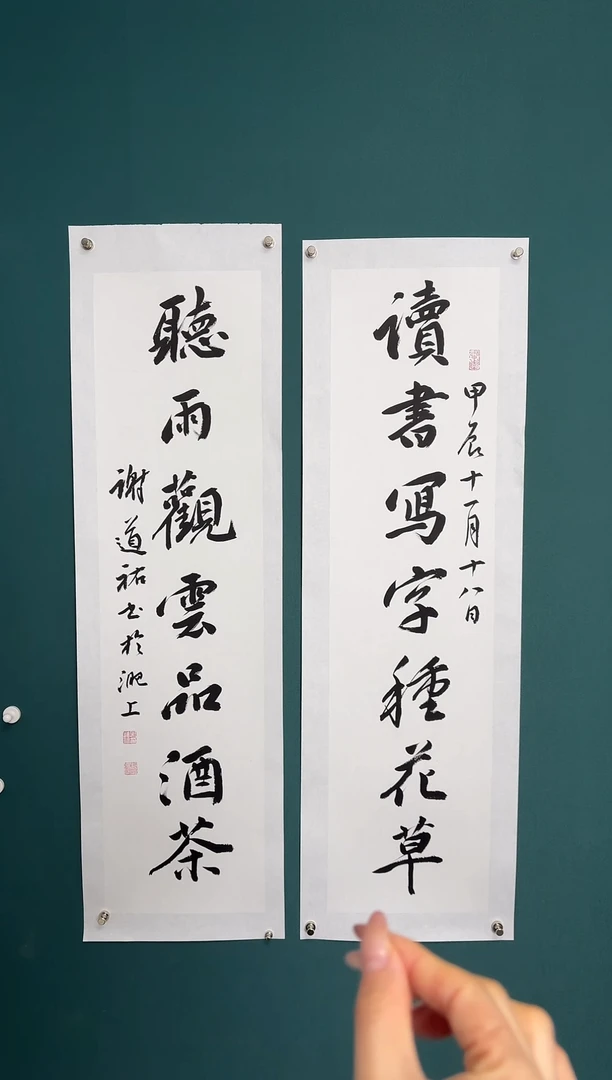 讀書寫字種花草
甲辰十一月十八日
聽雨觀雲品酒茶
謝道祐书於淝上